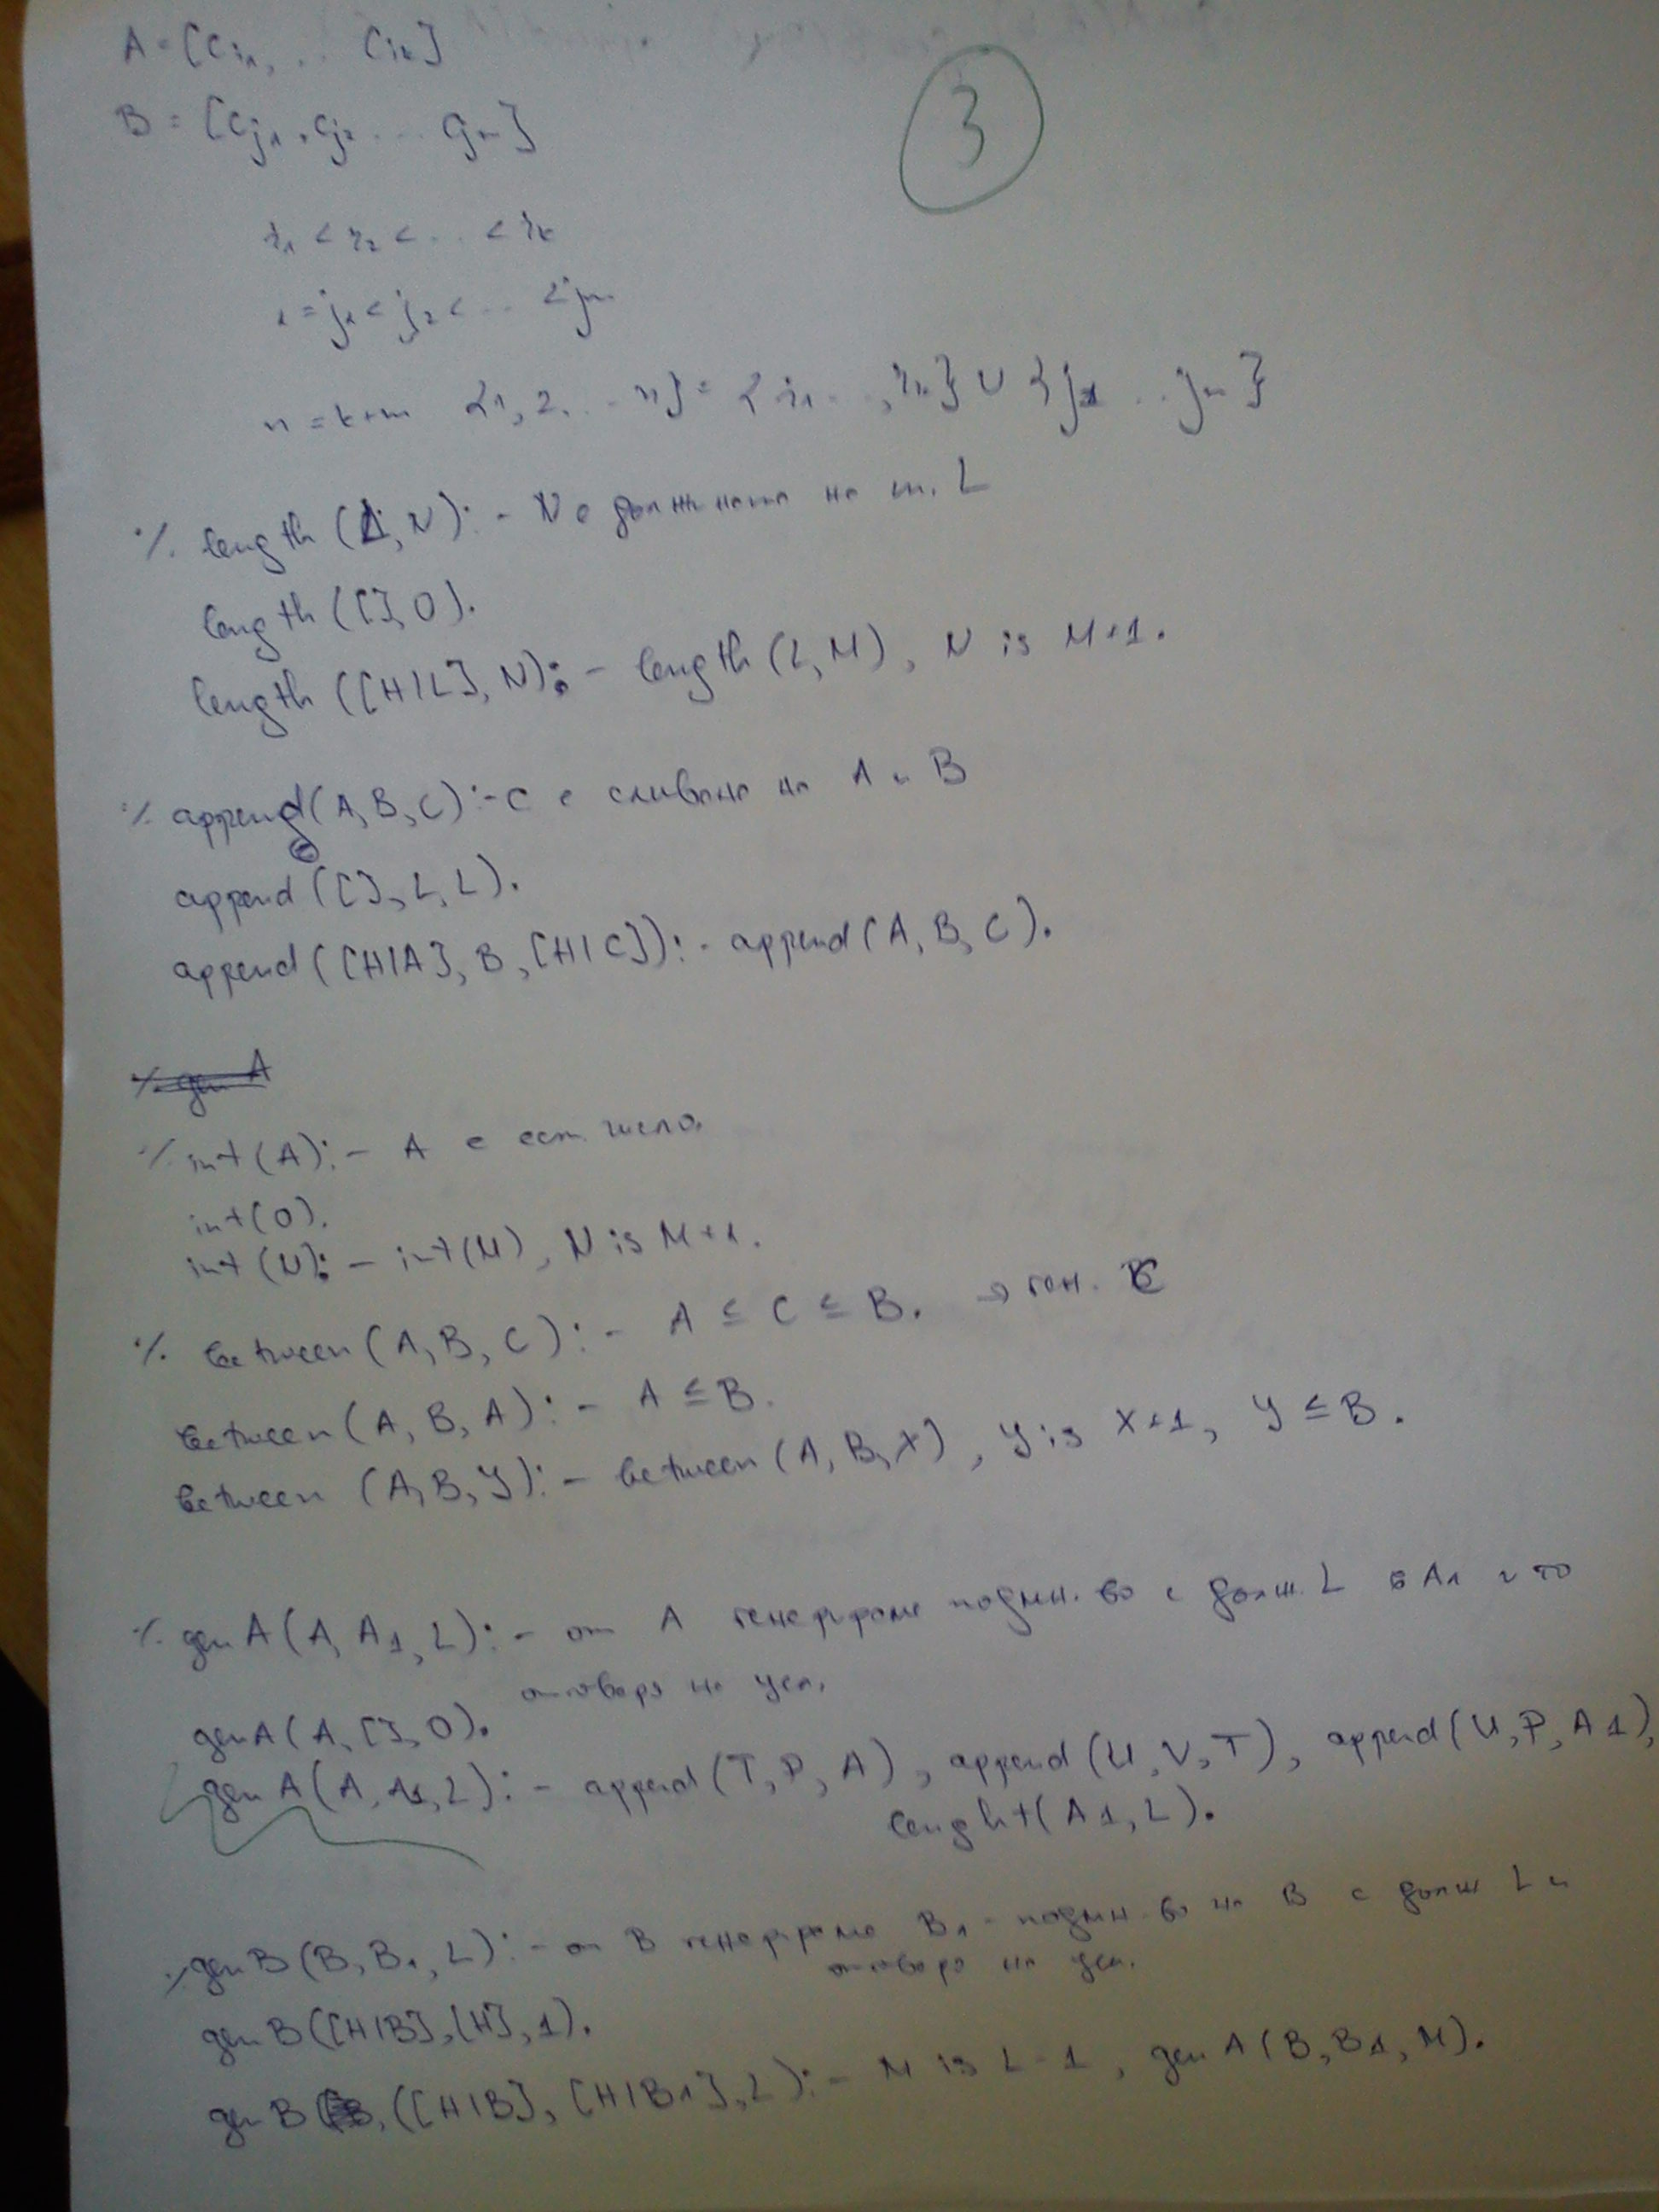 A = [C_{i1}, .. C_{ik}]
B = [C_{j1}, C_{j2} ... C_{jm}]
3
i_1 < i_2 < .. < i_k
1 = j_1 < j_2 < ... < j_m
n = k+m {1, 2, .. n} = {i_1 .. , i_k} ∪ {j_1 .. j_m}
% length (L, N):- N е дължината на сп. L
length ([], 0).
length ([H|L], N):- length (L, M), N is M+1.
% append(A, B, C):- C е сливане на A и B
append ([], L, L).
append ([H|A], B, [H|C]):- append(A, B, C).
% gen A
% int (A):- A е ест. число.
int(0).
int (N):- int(M), N is M+1.
% between(A, B, C):- A ≤ C ≤ B. → ген. C
between(A, B, A):- A ≤ B.
between (A, B, Y):- between (A, B, X), Y is X+1, Y ≤ B.
% gen A(A, A1, L):- от A генерираме подмн. во с дълж. L в A1 и то
отговаря на усл.
genA(A, [], 0).
gen A(A, A1, L):- append(T, P, A), append(U, V, T), append(U, P, A1),
lenght(A1, L).
% gen B(B, B1, L):- от B генерираме B1 - подмн-во на B с дълж L и
отговаря на усл.
gen B([H|B], [H], 1).
gen B ([H|B], [H|B1], L):- M is L-1, gen A(B, B1, M).